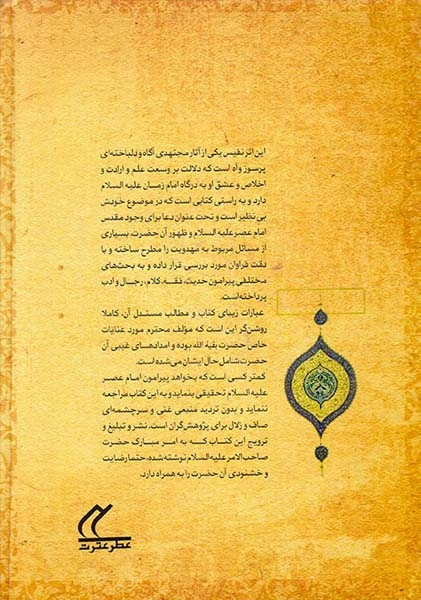 این اثر نفیس یکی از آثار مجتهدی آگاه و دلباخته‌ای
پرسوز و آه است که دلالت بر وسعت علم و ارادت و
اخلاص و عشق او به درگاه امام زمان علیه السلام
دارد و به راستی کتابی است که در موضوع خودش
بی‌نظیر است و تحت عنوان دعا برای وجود مقدس
امام عصر علیه السلام و ظهور آن حضرت، بسیاری
از مسائل مربوط به مهدویت را مطرح ساخته و با
دقت فراوان مورد بررسی قرار داده و به بحث‌های
مختلفی پیرامون حدیث، فقه، کلام، رجال و ادب
پرداخته‌است.
عبارات زیبای کتاب و مطالب مستدل آن، کاملا
روشن‌گر این است که مؤلف محترم مورد عنایات
خاص حضرت بقیة الله بوده و امدادهای غیبی آن
حضرت شامل حال ایشان می‌شده است.
کمتر کسی است که بخواهد پیرامون امام عصر
علیه السلام تحقیقی بنماید و به این کتاب مراجعه
ننماید و بدون تردید منبعی غنی و سرچشمه‌ای
صاف و زلال برای پژوهش‌گران است، نشر و تبلیغ و
ترویج این کتاب که به امر مبارک حضرت
صاحب‌الامر علیه السلام نوشته شده، حتما رضایت و
خشنودی آن حضرت را به همراه دارد.
عطر عترت